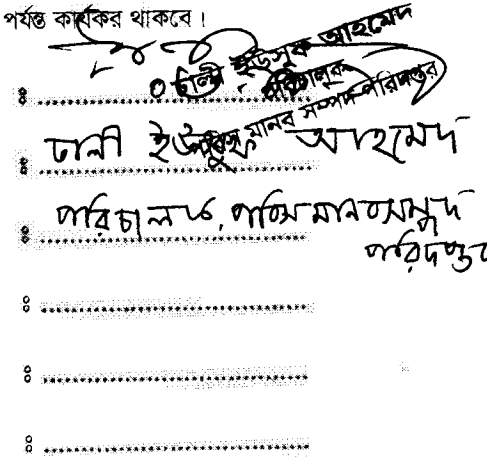 পর্যন্ত কার্যকর থাকবে।
ঢালী ইউসুফ আহমেদ
পরিচালক
মানব সম্পদ পরিদপ্তর
ঃ ..........
ঃ ঢালী ইউসুফ আহমেদ
ঃ পরিচালক, মানবসম্পদ
পরিদপ্তর
ঃ ..........
ঃ ..........
ঃ ..........